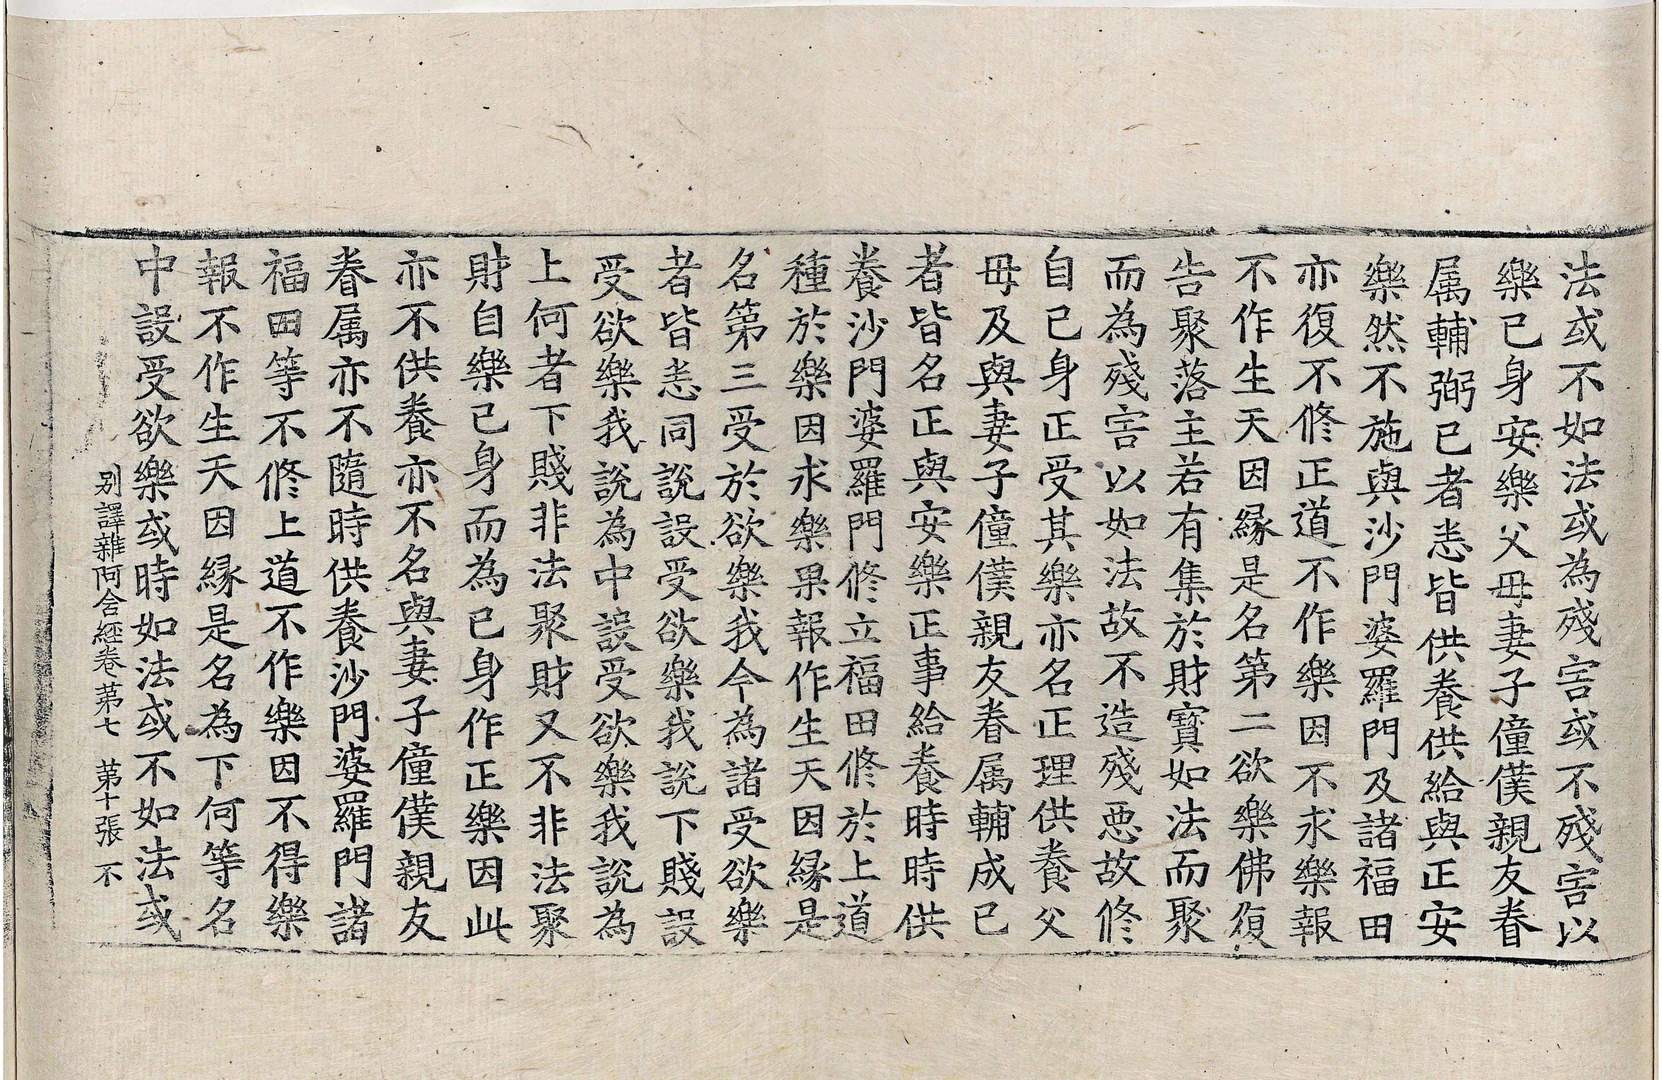 法或不如法或為殘害或不殘害以
樂已身安樂父母妻子僮僕親友眷
属輔弼已者悉皆供養供給與正安
樂然不施與沙門婆羅門及諸福田
亦復不修正道不作樂因不求樂報
不作生天因緣是名第二欲樂佛復
告聚落主若有集於財寶如法而聚
而為殘害以如法故不造殘惡故修
自已身正受其樂亦名正理供養父
母及與妻子僮僕親友眷属輔成已
者皆名正與安樂正事給養時時供
養沙門婆羅門修立福田修於上道
種於樂因求樂果報作生天因緣是
名第三受於欲樂我今為諸受欲樂
者皆悉同說設受欲樂我說下賤設
受欲樂我說為中設受欲樂我說為
上何者下賤非法聚財又不非法聚
財自樂已身而為已身作正樂因此
亦不供養亦不名與妻子僮僕親友
眷属亦不隨時供養沙門婆羅門諸
福田等不修上道不作樂因不得樂
報不作生天因緣是名為下何等名
中設受欲樂或時如法或不如法或
别譯雜阿含經卷第七 第十張 不